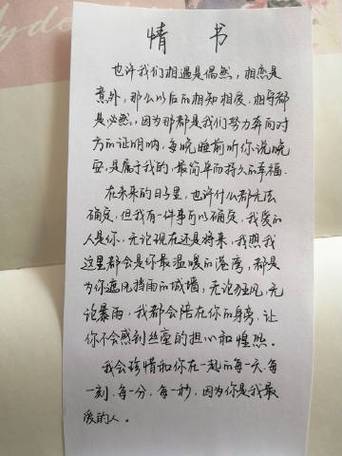 情书
也许我们相遇是偶然，相恋是
意外，那么以后的相知相度，相守都
是必然，因为那都是我们努力奔向对
方的证明呐，每晚睡前听你说晚
安，是属于我的，最简单而持久的幸福.
在未来的日子里，也许什么都无法
确定，但我有一件事可以确定，我爱的
人是你，无论现在还是将来，我
这里都会是你最温暖的港湾，都是
为你遮风挡雨的城墙，无论狂风，无
论暴雨，我都会陪在你的身旁，让
你不会感到丝毫的担心和惶然.
我会珍惜和你在一起的每一天，每
一刻，每一分，每一秒，因为你是我最
爱的人。